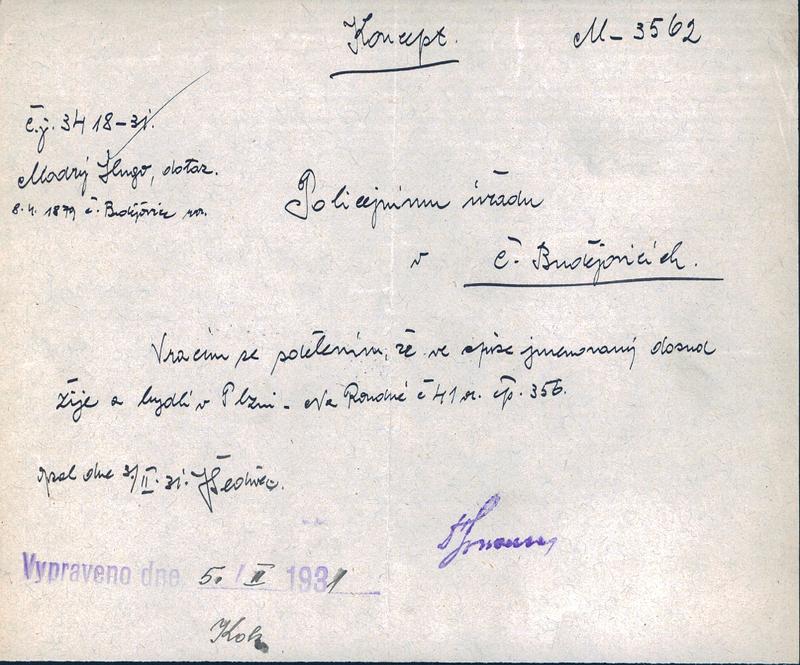 Koncept.
M-3562
č.j. 3418-31.
Modrý Hugo, dotaz.
8.4. 1879 č. Budějovic nar.
Policejnímu úřadu
v
Č. Budějovicích.
Vracím se sdělením, že ve spise jmenovaný dosud
žije a bydlí v Plzni - Na Roudné č 41 n. čp. 356.
psal dne 3/II. 31.
Vypraveno dne 5. / II 1931
Kok